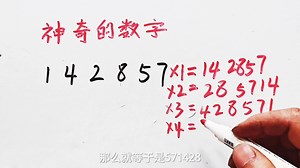 神奇的数字
142857
x1=142857
x2=285714
x3=428571
x4=
那么就等于是571428